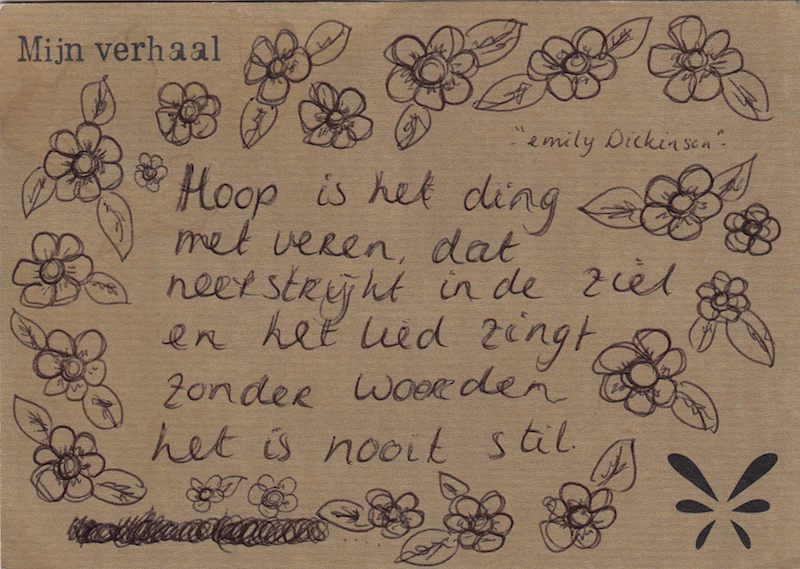 Mijn verhaal
"emily Dickinson"
Hoop is het ding
met veren, dat
neerstrijkt in de ziel
en het lied zingt
zonder woorden
het is nooit stil.